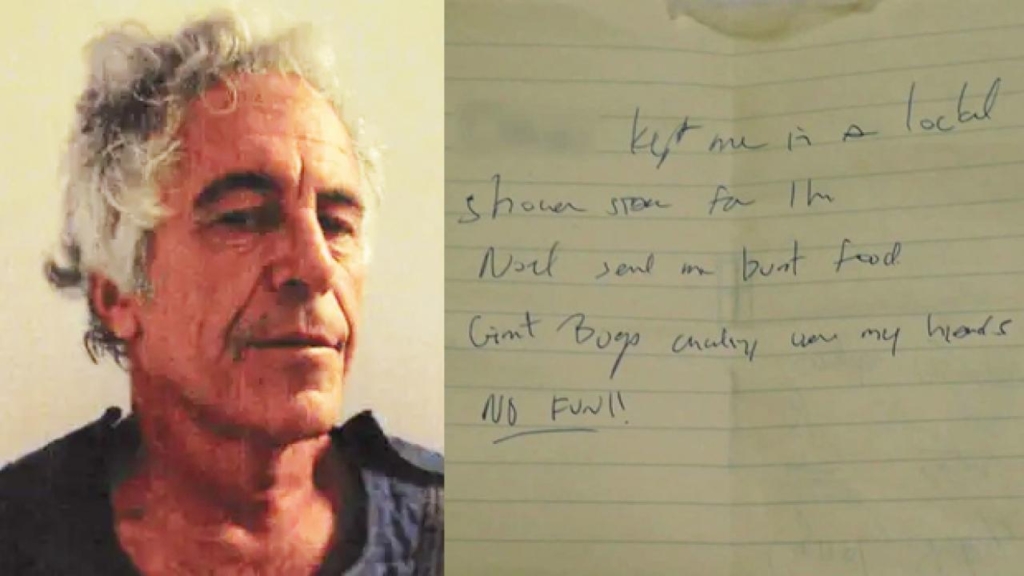 kept me in a locked
shower stall for 1 hr
Noel sent me burnt food
Giant Bugs crawling over my hands
NO FUN!!